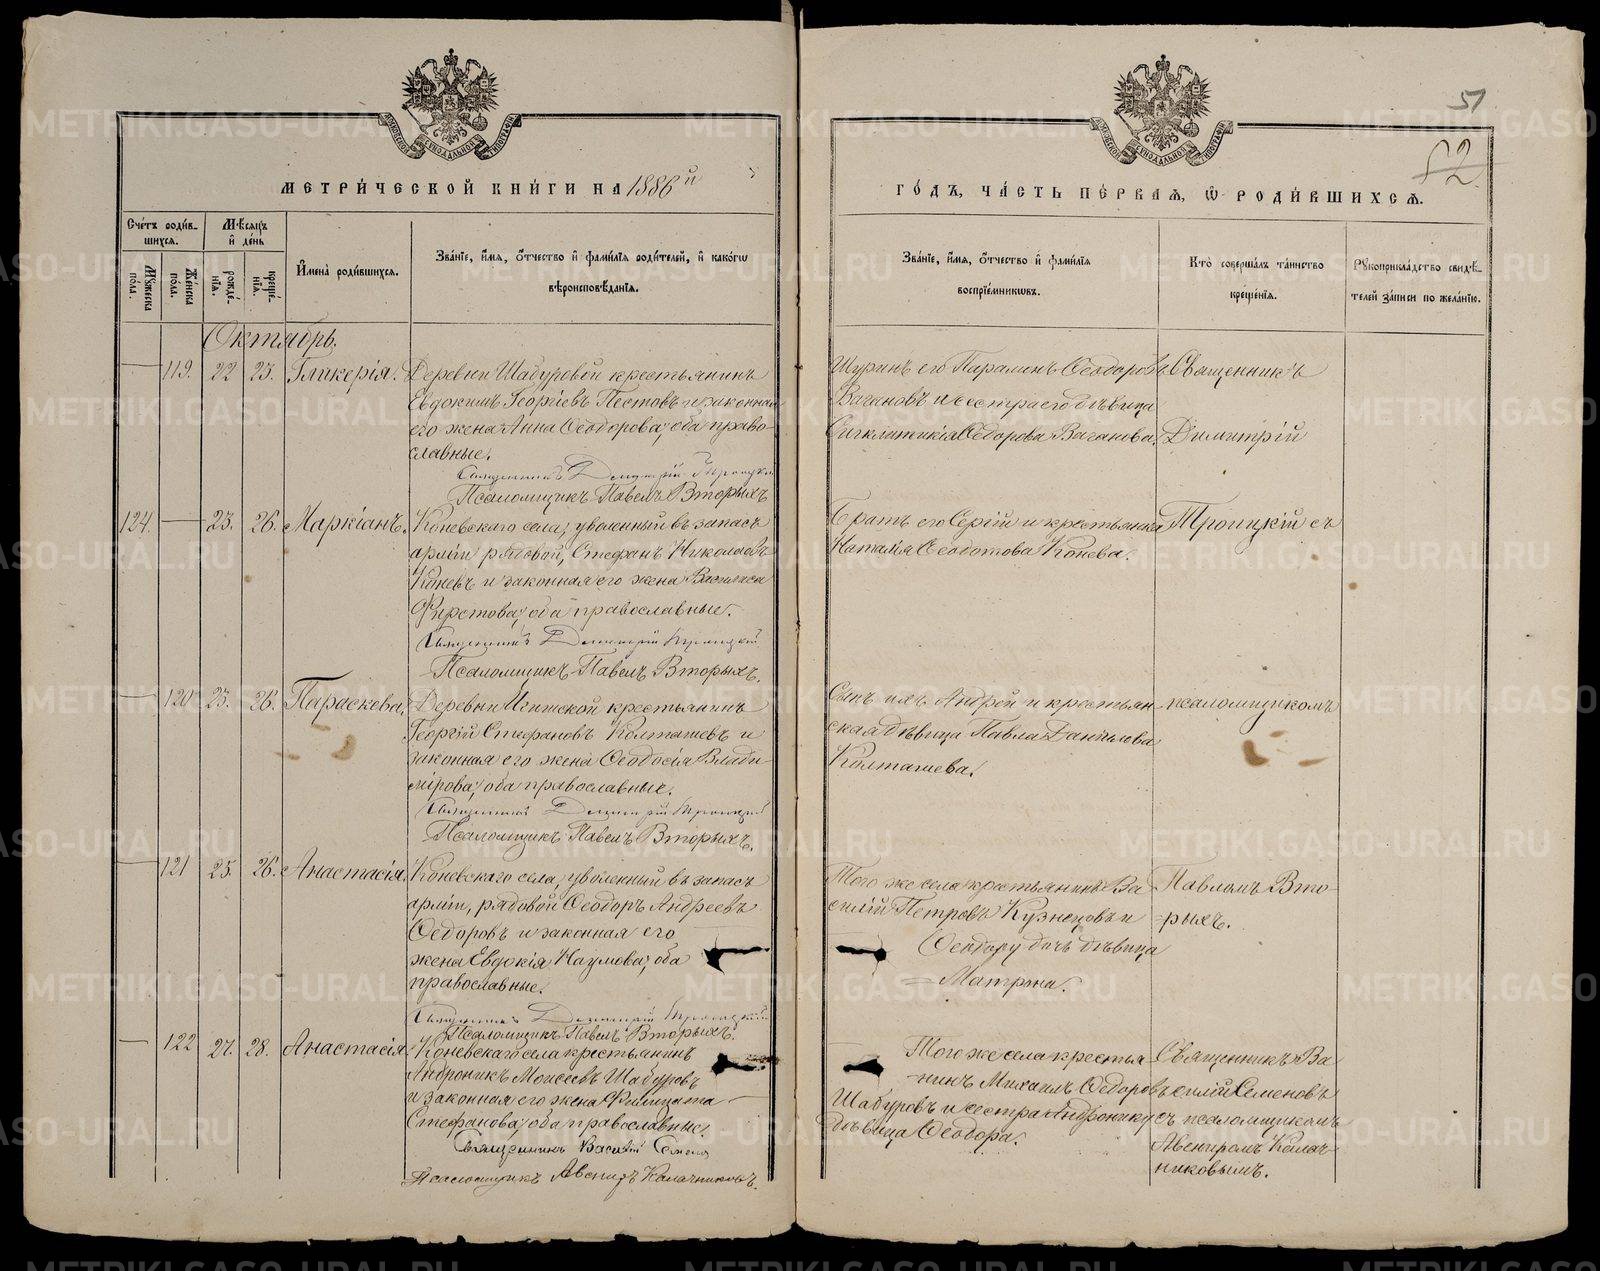 МЕТРИ́ЧЕСКОЙ КНИ́ГИ НА 1886й
Сче́тъ роди́в-
шихся.
Мѣсяцъ
и де́нь
Мужеска
пола.
Же́нска
пола.
рожде́-
нія.
креще́-
нія.
Имена̀ роди́вшихся.
Зва́ніе, и́мя, о́тчество и фами́лія роди́телей, и како́гѡ
вѣроисповѣ́данія.
Октябрь.
119. 22 23. Гликерія.
Деревни Шабуровой крестьянинъ
Евдокимъ Георгіевъ Пестовъ и законная
его жена Анна Ѳеодорова; оба право-
славные.
Священникъ Димитрій Троицкій
Псаломщикъ Павелъ Вторыхъ
124. 23. 26. Маркіанъ.
Коневскаго села, уволенный въ запасъ
арміи рядовой, Стефанъ Николаевъ
Коневъ и законная его жена Василиса
Фирстова; оба православные.
Священникъ Димитрій Троицкій
Псаломщикъ Павелъ Вторыхъ.
120 23. 26. Параскева.
Деревни Игишской крестьянинъ
Георгій Стефановъ Колташевъ и
законная его жена Ѳеодосія Влади-
мірова; оба православные.
Священникъ Димитрій Троицкій
Псаломщикъ Павелъ Вторыхъ.
121 25. 26. Анастасія.
Коневскаго села, уволенный въ запасъ
арміи, рядовой Ѳеодоръ Андреевъ
Ѳедоровъ и законная его
жена Евдокія Наумова; оба
православные.
Священникъ Димитрій Троицкій
Псаломщикъ Павелъ Вторыхъ.
122 27. 28. Анастасія.
Коневскаго села крестьянинъ
Андроникъ Моисеевъ Шабуровъ
и законная его жена Филицата
Стефанова; оба православные.
Священникъ Василій Семенов
Псаломщикъ Авениръ Калачниковъ.
51
52
ГО́ДЪ, ЧА́СТЬ ПЕ́РВАЯ, Ѡ РОДИ́ВШИХСЯ.
Зва́ніе, и́мя, о́тчество и фами́лія
воспріе́мниковъ.
Кто̀ соверша́лъ та́инство
креще́нія.
Рукоприкла́дство свидѣ́-
телей за́писи по жела́нію.
Шуринъ его Парамонъ Ѳеодоров
Вагановъ и сестра его дѣвица
Синклитикія Ѳедорова Ваганова.
Священникъ
Димитрій
Братъ его Сергій и крестьянка
Наталія Ѳеодотова Конева.
Троицкій съ
Сынъ ихъ Андрей и крестьян-
ская дѣвица Павла Данилова
Колташева.
псаломщикомъ
Того же села крестьянинъ Ва-
силій Петровъ Кузнецовъ и
Ѳеодору дочь дѣвица
Матрона.
Павломъ Вто-
рыхъ.
Того же села крестья-
нинъ Михаилъ Ѳедоровъ
Шабуровъ и сестра Андронику
дѣвица Ѳеодора.
Священникъ Ва-
силій Семеновъ
съ псаломщикомъ
Авениромъ Калач-
никовымъ.
METRIKI.GASO-URAL.RU